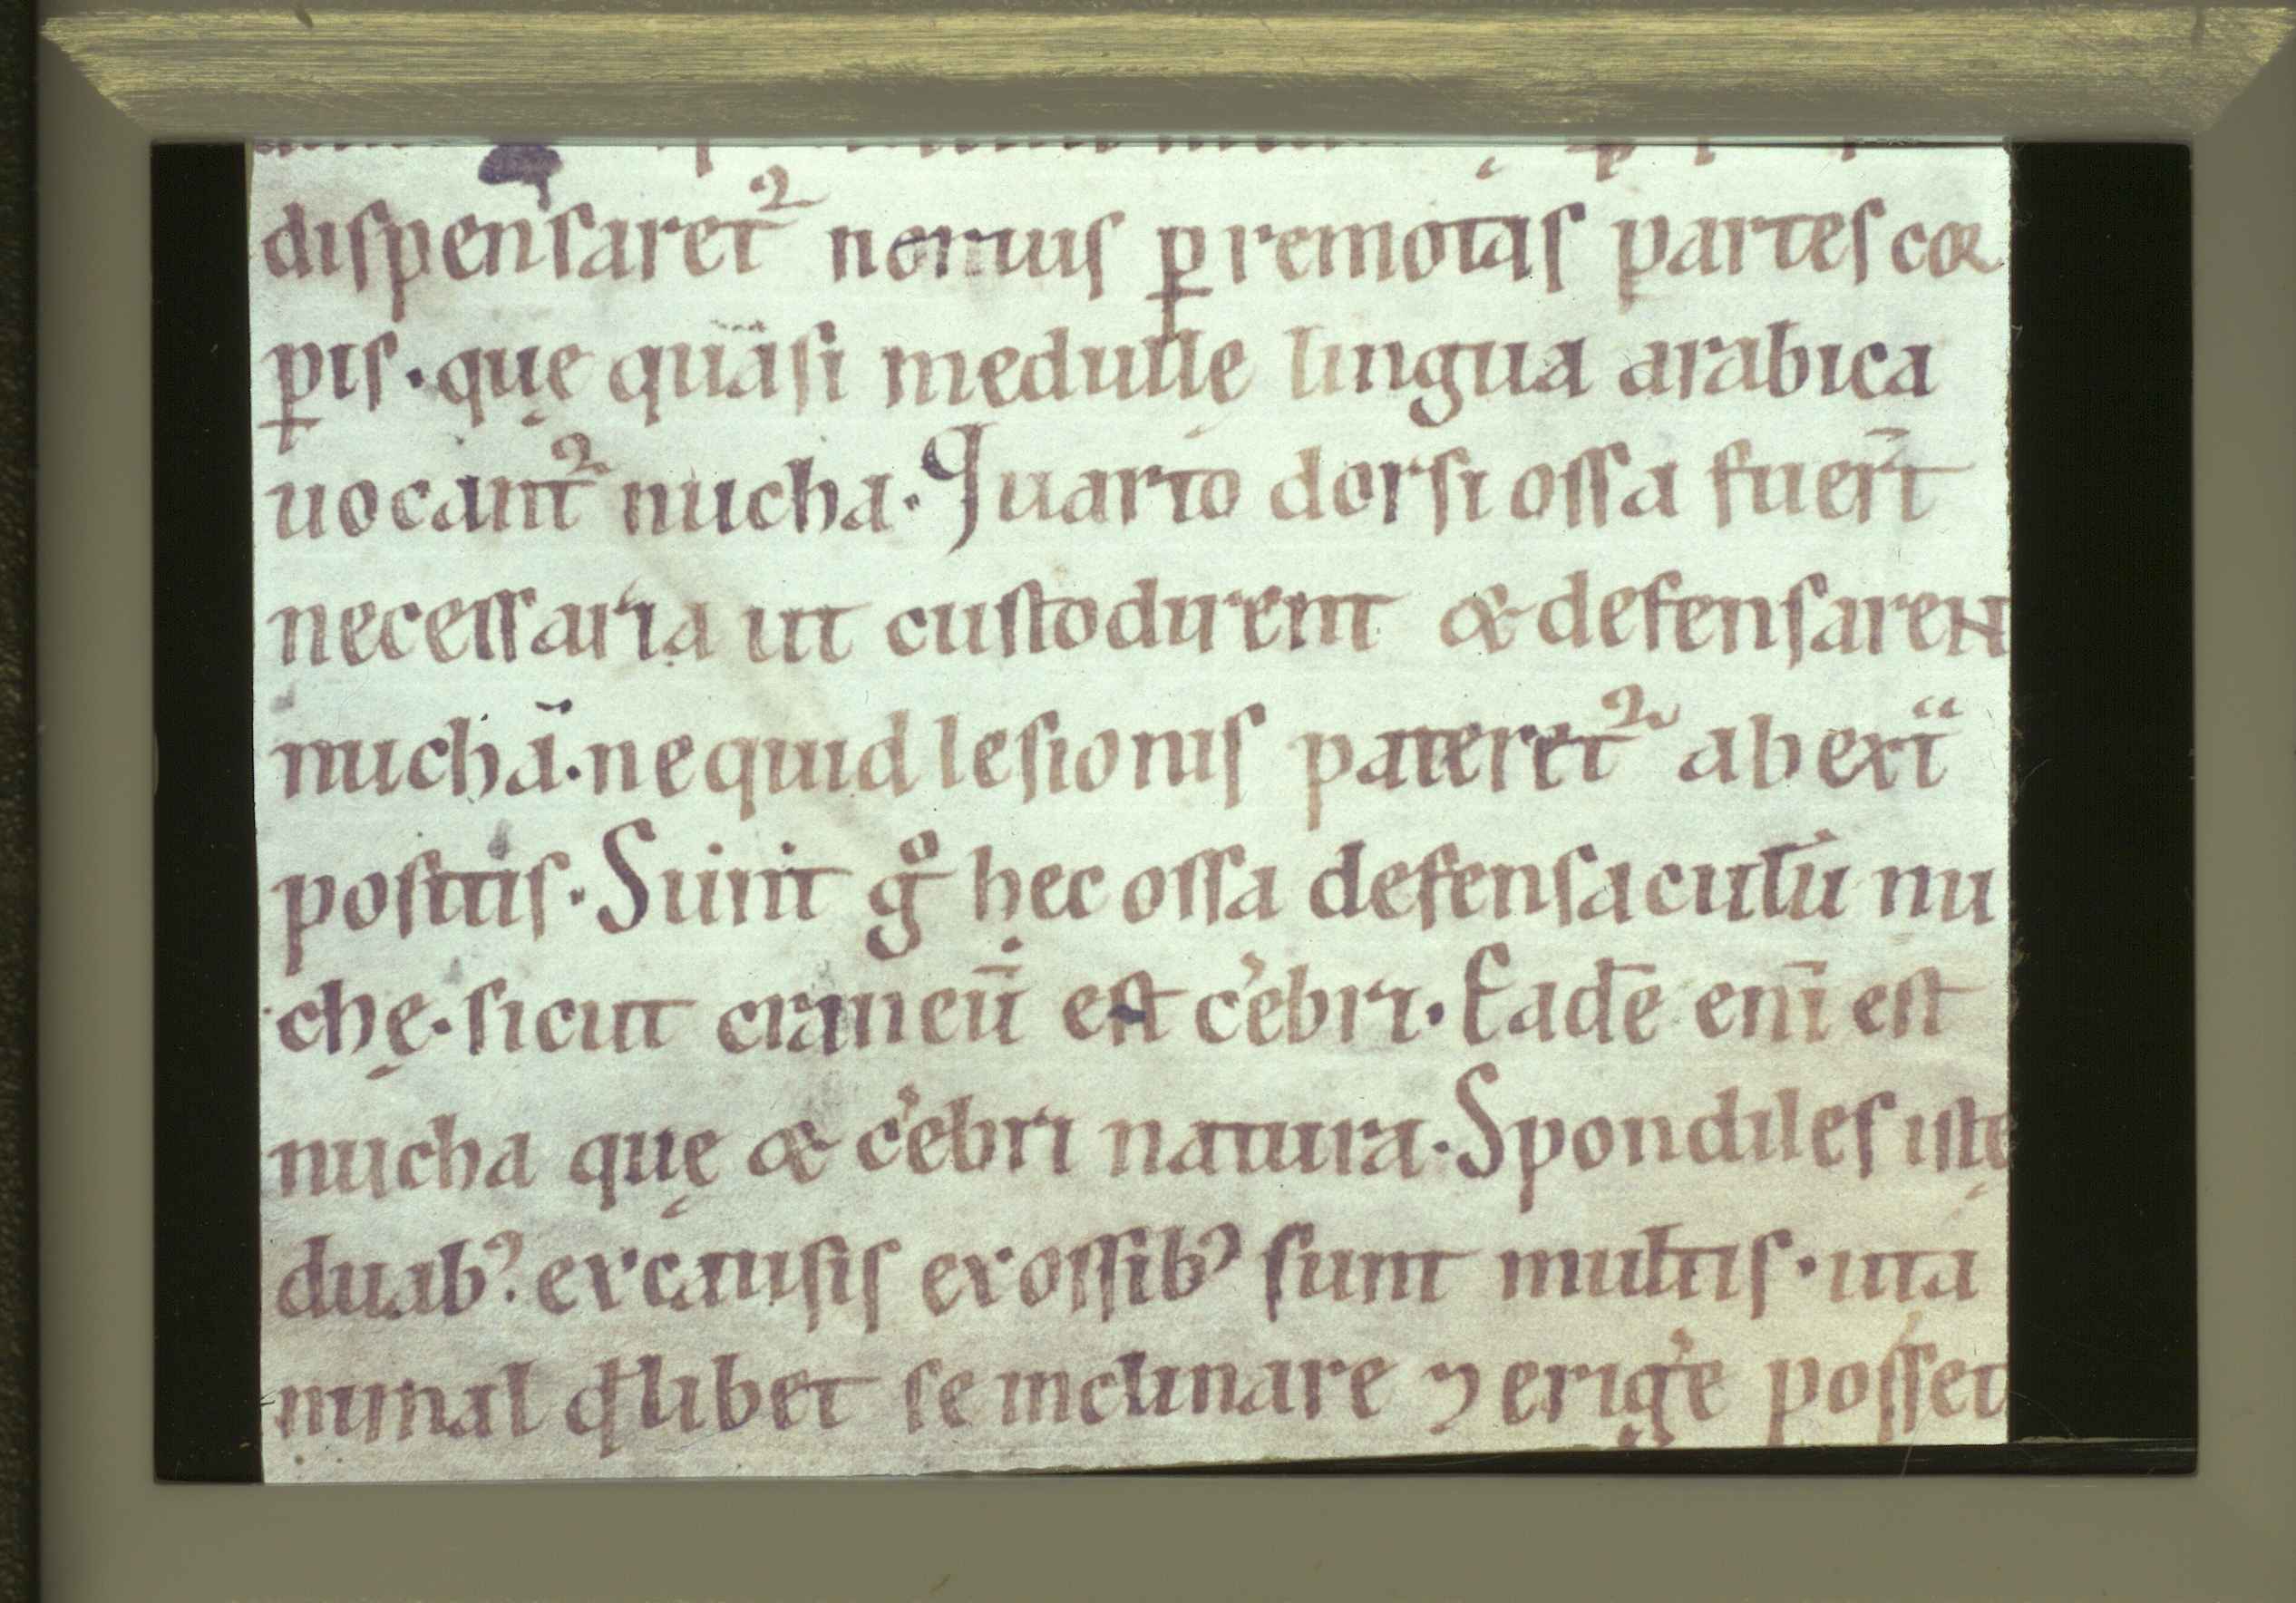 dispensaret᷑ neruis ꝑ remotas partes cor
ꝑis · quę quasi medullę lingua arabica
uocant᷑ nucha · Quarto dorsi ossa fuer̄t
necessaria ut custodirent & defensarent
nuchā · ne quid lesionis pateret᷑ ab ext̎
positis · Sunt gͦ hec ossa defensaculū nu
chę · sicut craneū est c̓ebri · Eadē enī est
nucha quę & c̓ebri natura · Spondiles istę
duabꝰ · ex causis ex ossibꝰ sunt multis · ut a
nimal q̄libet se inclinare ⁊ erig̓e posset